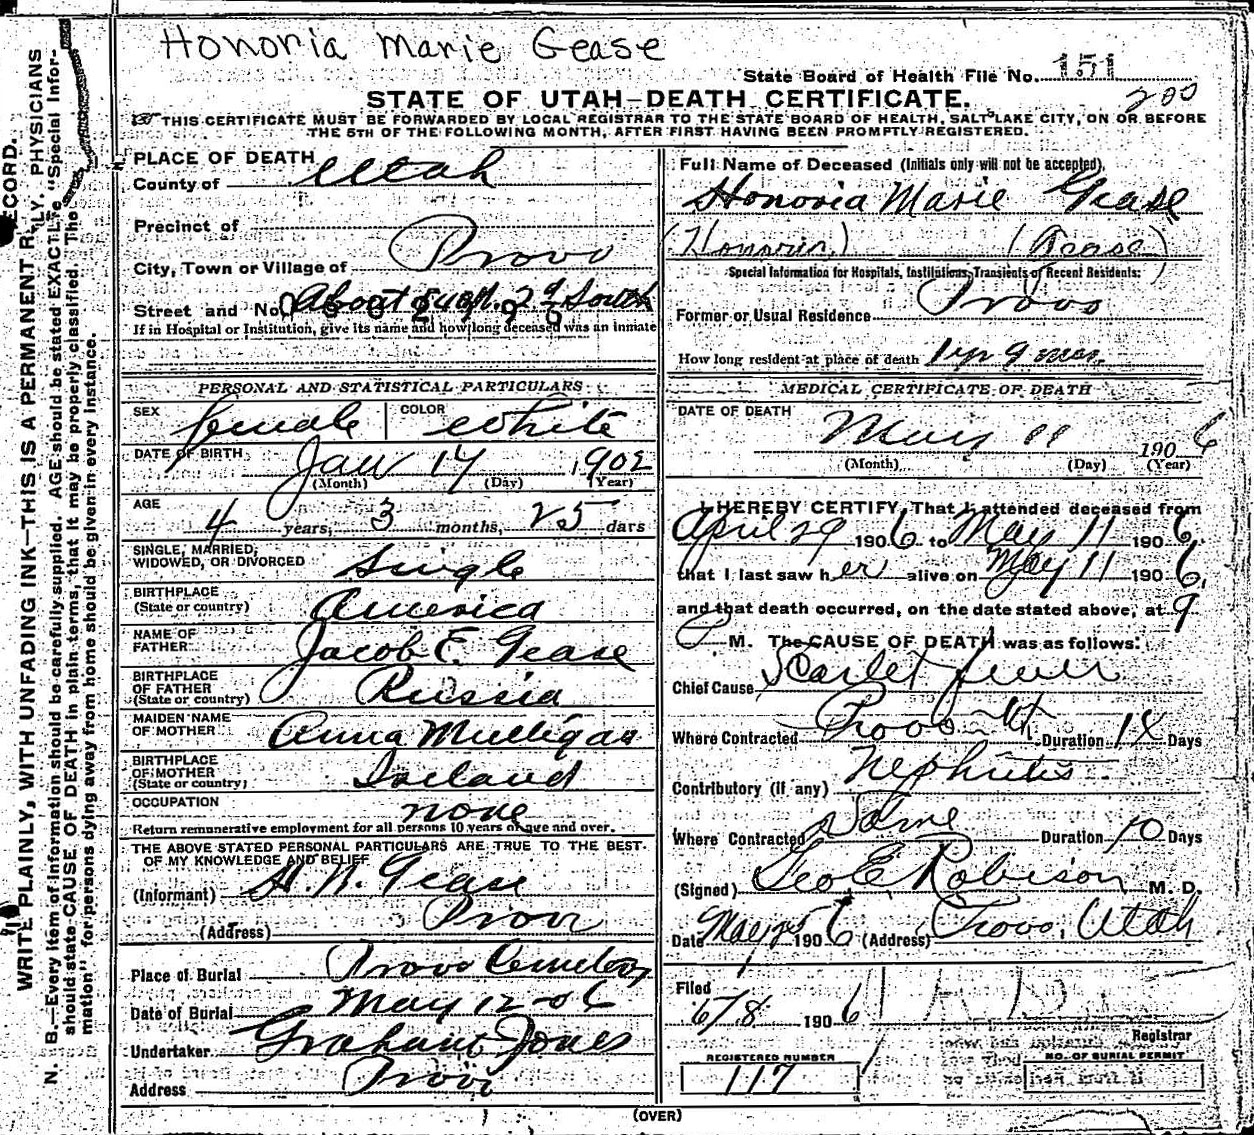 Honoria Marie Gease
State Board of Health File No. 151
200
STATE OF UTAH—DEATH CERTIFICATE.
THIS CERTIFICATE MUST BE FORWARDED BY LOCAL REGISTRAR TO THE STATE BOARD OF HEALTH, SALT LAKE CITY, ON OR BEFORE
THE 5TH OF THE FOLLOWING MONTH, AFTER FIRST HAVING BEEN PROMPTLY REGISTERED.
WRITE PLAINLY, WITH UNFADING INK—THIS IS A PERMANENT RECORD.
N. B.—Every item of information should be carefully supplied. AGE should be stated EXACTLY. PHYSICIANS
should state CAUSE OF DEATH in plain terms, that it may be properly classified. The "Special Infor-
mation" for persons dying away from home should be given in every instance.
PLACE OF DEATH
County of Utah
Precinct of
City, Town or Village of Provo
Street and No. About 2d South
If in Hospital or Institution, give its name and how long deceased was an inmate
PERSONAL AND STATISTICAL PARTICULARS
SEX female COLOR white
DATE OF BIRTH Jan 17 1902
(Month) (Day) (Year)
AGE 4 years, 3 months, 25 days
SINGLE, MARRIED,
WIDOWED, OR DIVORCED Single
BIRTHPLACE
(State or country) America
NAME OF
FATHER Jacob E. Gease
BIRTHPLACE
OF FATHER
(State or country) Russia
MAIDEN NAME
OF MOTHER Anna Mulligan
BIRTHPLACE
OF MOTHER
(State or country) Ireland
OCCUPATION none
Return remunerative employment for all persons 10 years of age and over.
THE ABOVE STATED PERSONAL PARTICULARS ARE TRUE TO THE BEST
OF MY KNOWLEDGE AND BELIEF
(Informant) H. N. Gease
(Address) Provo
Place of Burial Provo Cemetery
Date of Burial May 12-06
Undertaker Graham Jones
Address Provo
Full Name of Deceased (Initials only will not be accepted)
Honoria Marie Gease
(Honoria) (Gease)
Special Information for Hospitals, Institutions, Transients or Recent Residents:
Former or Usual Residence Provo
How long resident at place of death 1 yr 9 mos.
MEDICAL CERTIFICATE OF DEATH
DATE OF DEATH
May 11 1906
(Month) (Day) (Year)
I HEREBY CERTIFY, That I attended deceased from
April 29 1906 to May 11 1906,
that I last saw her alive on May 11 1906,
and that death occurred, on the date stated above, at 9
M. The CAUSE OF DEATH was as follows:
Chief Cause Scarlet fever
Where Contracted Provo Ut. Duration 14 Days
Contributory (if any) Nephritis
Where Contracted Same Duration 10 Days
(Signed) Geo E. Robison M. D.
Date May 1906 (Address) Provo, Utah
Filed
6/8 1906
Registrar
REGISTERED NUMBER
117
NO. OF BURIAL PERMIT
(OVER)